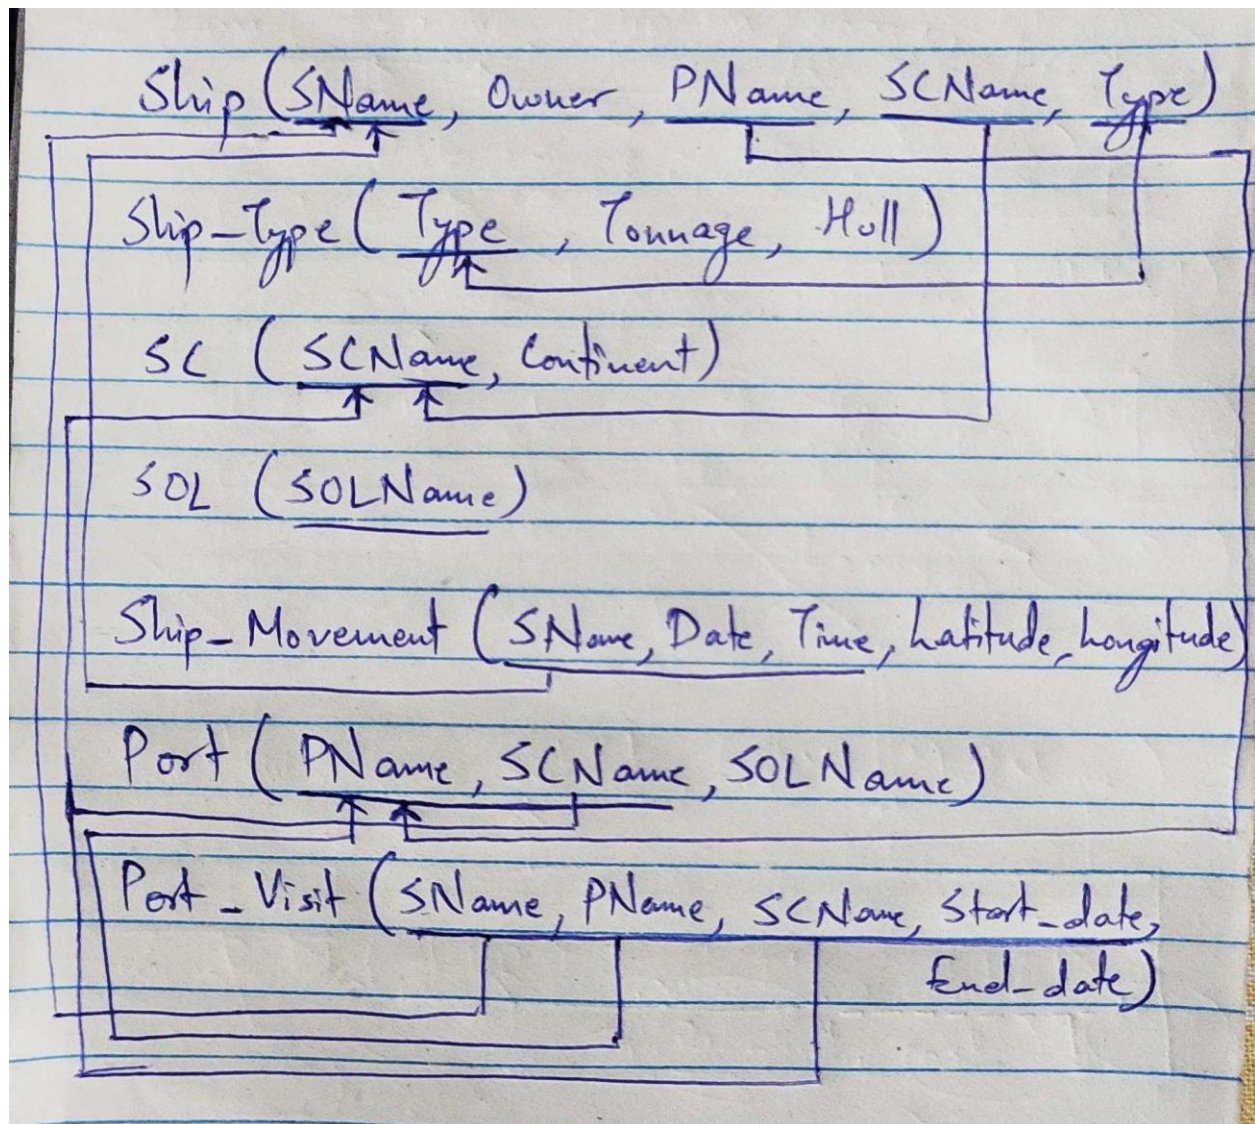 Ship (SName, Owner, PName, SCName, Type)
Ship_Type ( Type, Tonnage, Hull )
SC ( SCName, Continent)
SOL (SOLName)
Ship_Movement (SName, Date, Time, Latitude, Longitude)
Port ( PName, SCName, SOLName)
Port_Visit (SName, PName, SCName, Start_date,
End_date)